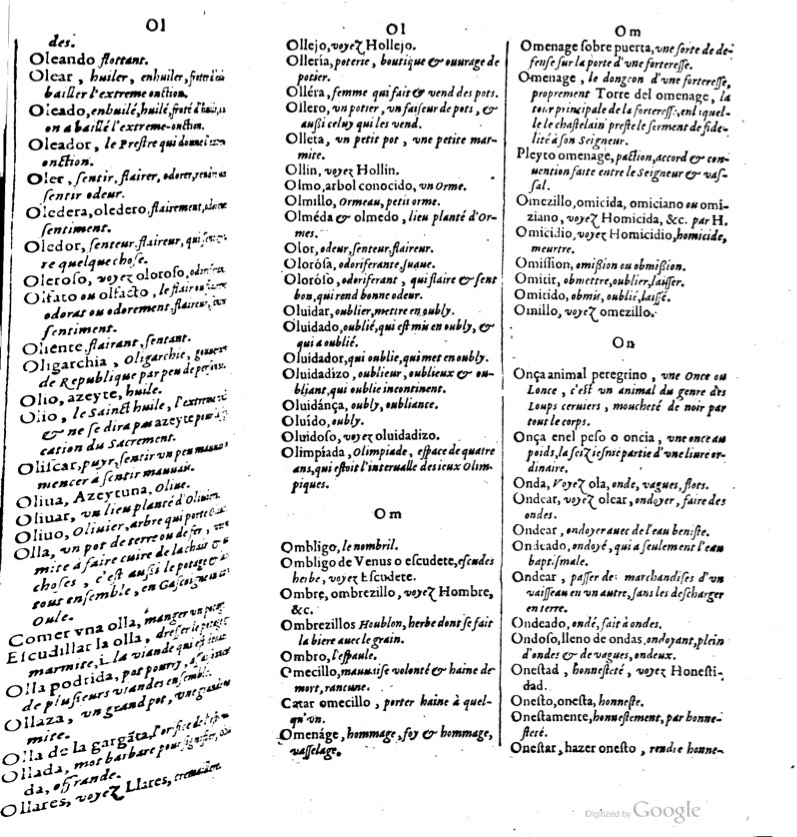 Ol
des.
Oleando flottant.
Olear, huiler, enhuiler,
bailler l'extreme onction.
Oleado, enhuilé, huilé, froté
on a baillé l'extreme-onction.
Oleador, le Prestre qui donne
onction.
Oler, sentir, flairer, odorer,
sentir odeur.
Oledera, oledero, flairement,
sentiment.
Oledor, senteur, flaireur, qui
re quelque chose.
Oleroso, voyez oloroso,
Olfato ou olfacto, le flair ou
odorat ou odorement, flaireur,
sentiment.
Oliente, flairant, sentant.
Oligarchia, Oligarchie,
de Republique par peu de
Olio, azeyte, huile.
Olio, le Sainct huile, l'extreme
& ne se dira pas azeyte
cation du Sacrement.
Oliscar, puyr, sentir un peu mauuais
mencer à sentir mauuais.
Oliua, Azeytuna, Oliue.
Oliuar, vn lieu planté d'Oliuiers.
Oliuo, Oliuier, arbre qui porte
Olla, vn pot de terre ou de fer,
mite à faire cuire de la chair &
choses, c'est aussi le potage &
tout ensemble, en Gascoigne
Oule.
Comer vna olla, manger vn potage
Escudillar la olla, dresser le potage
marmite, la viande qui est
Olla podrida, pot pourry,
de plusieurs viandes ensemble.
Ollaza, vn grand pot, vne grande
mite.
Olla de la gargãta, l'orifice de
Ollada, mot barbare pour signifier,
da, offrande.
Ollares, voyez Llares,
Ol
Ollejo, voyez Hollejo.
Olleria, poterie, boutique & ouurage de
potier.
Olléra, femme qui fait & vend des pots.
Ollero, vn potier, vn faiseur de pots, &
aussi celuy qui les vend.
Olleta, vn petit pot, vne petite mar-
mite.
Ollin, voyez Hollin.
Olmo, arbol conocido, vn Orme.
Olmillo, Ormeau, petit orme.
Olméda & olmedo, lieu planté d'Or-
mes.
Olor, odeur, senteur, flaireur.
Olorósa, odoriferante, suaue.
Oloróso, odoriferant, qui flaire & sent
bon, qui rend bonne odeur.
Oluidar, oublier, mettre en oubly.
Oluidado, oublié, qui est mis en oubly, &
qui a oublié.
Oluidador, qui oublie, qui met en oubly.
Oluidadizo, oublieur, oublieux & ou-
bliant, qui oublie incontinent.
Oluidánça, oubly, oubliance.
Oluido, oubly.
Oluidoso, voyez oluidadizo.
Olimpiada, Olimpiade, espace de quatre
ans, qui estoit l'interualle des ieux Olim-
piques.
Om
Ombligo, le nombril.
Ombligo de Venus o escudete, escudes
herbe, voyez Escudete.
Ombre, ombrezillo, voyez Hombre,
&c.
Ombrezillos Houblon, herbe dont se fait
la biere auec le grain.
Ombro, l'espaule.
Omecillo, mauuaise volonté & haine de
mort, rancune.
Catar omecillo, porter haine à quel-
qu'vn.
Omenáge, hommage, foy & hommage,
vasselage.
Om
Omenage sobre puerta, vne sorte de de-
fense sur la porte d'vne forteresse.
Omenage, le dongeon d'vne forteresse,
proprement Torre del omenage, la
tour principale de la forteresse, en laquel-
le le chastelain preste le serment de fide-
lité à son Seigneur.
Pleyto omenage, paction, accord & con-
uention faite entre le Seigneur & vas-
sal.
Omezillo, omicida, omiciano ou omi-
ziano, voyez Homicida, &c. par H.
Omicidio, voyez Homicidio, homicide,
meurtre.
Omission, omission ou obmission.
Omitir, obmettre, oublier, laisser.
Omitido, obmis, oublié, laissé.
Omillo, voyez omezillo.
On
Onça animal peregrino, vne Once ou
Lonce, c'est vn animal du genre des
Loups ceruiers, moucheté de noir par
tout le corps.
Onça enel peso o oncia, vne once au
poids, la seiziesme partie d'vne liure or-
dinaire.
Onda, Voyez ola, onde, vagues, flots.
Ondear, voyez olear, ondoyer, faire des
ondes.
Ondear, ondoyer auec de l'eau beniste.
Ondeado, ondoyé, qui a seulement l'eau
baptismale.
Ondear, passer des marchandises d'vn
vaisseau en vn autre, sans les descharger
en terre.
Ondeado, ondé, fait à ondes.
Ondoso, lleno de ondas, ondoyant, plein
d'ondes & de vagues, ondeux.
Onestad, honnesteté, voyez Honesti-
dad.
Onesto, onesta, honneste.
Onestamente, honnestement, par honne-
steté.
Onestar, hazer onesto, rendre honne-
Digitized by Google